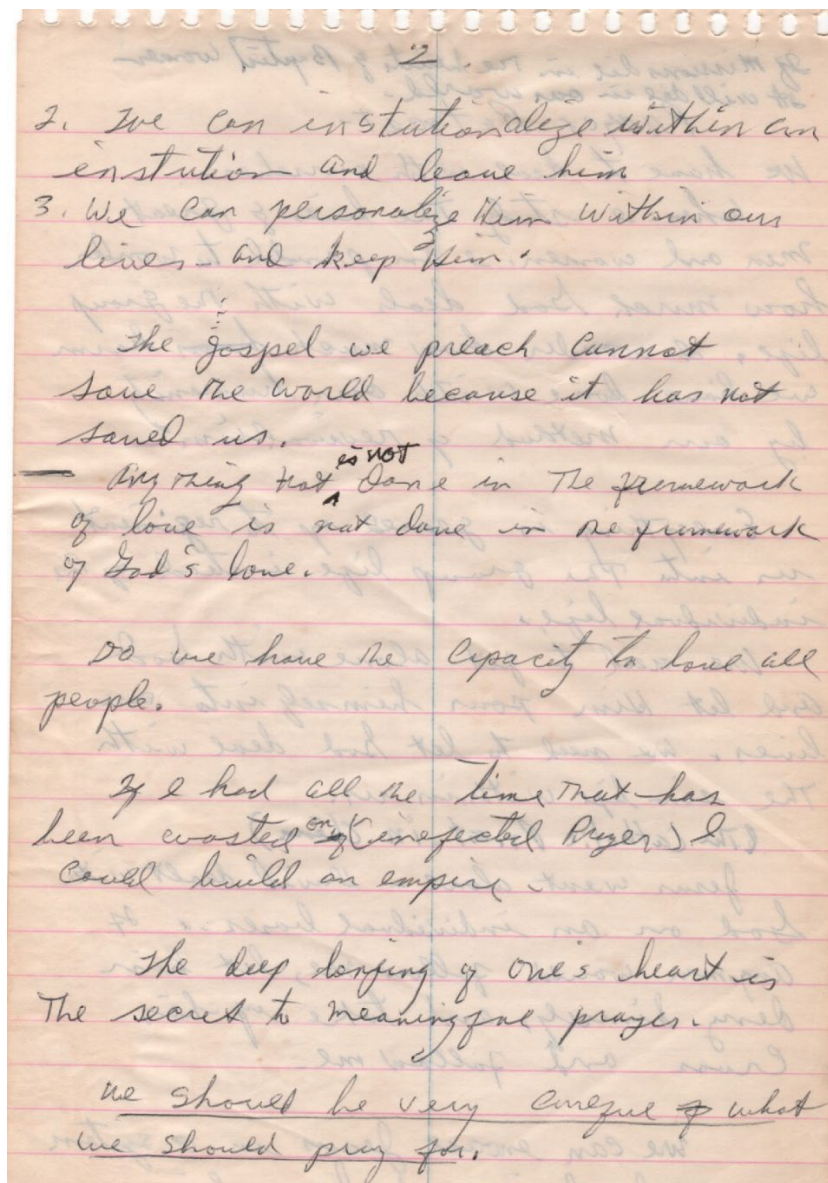 2
2. We can instutionalize within an
instution and leave him
3. We can personalize Him within our
lives - and keep Him.
The gospel we preach cannot
save the world because it has not
saved us.
— Any thing that is not done in the framework
of love is not done in the framework
of God's love.
Do we have the capacity to love all
people.
If I had all the time that has
been wasted on (inefected Prayer) I
could build an empire
The deep longing of one's heart is
The secret to meaningful prayer.
We should be very careful what
we should pray for.